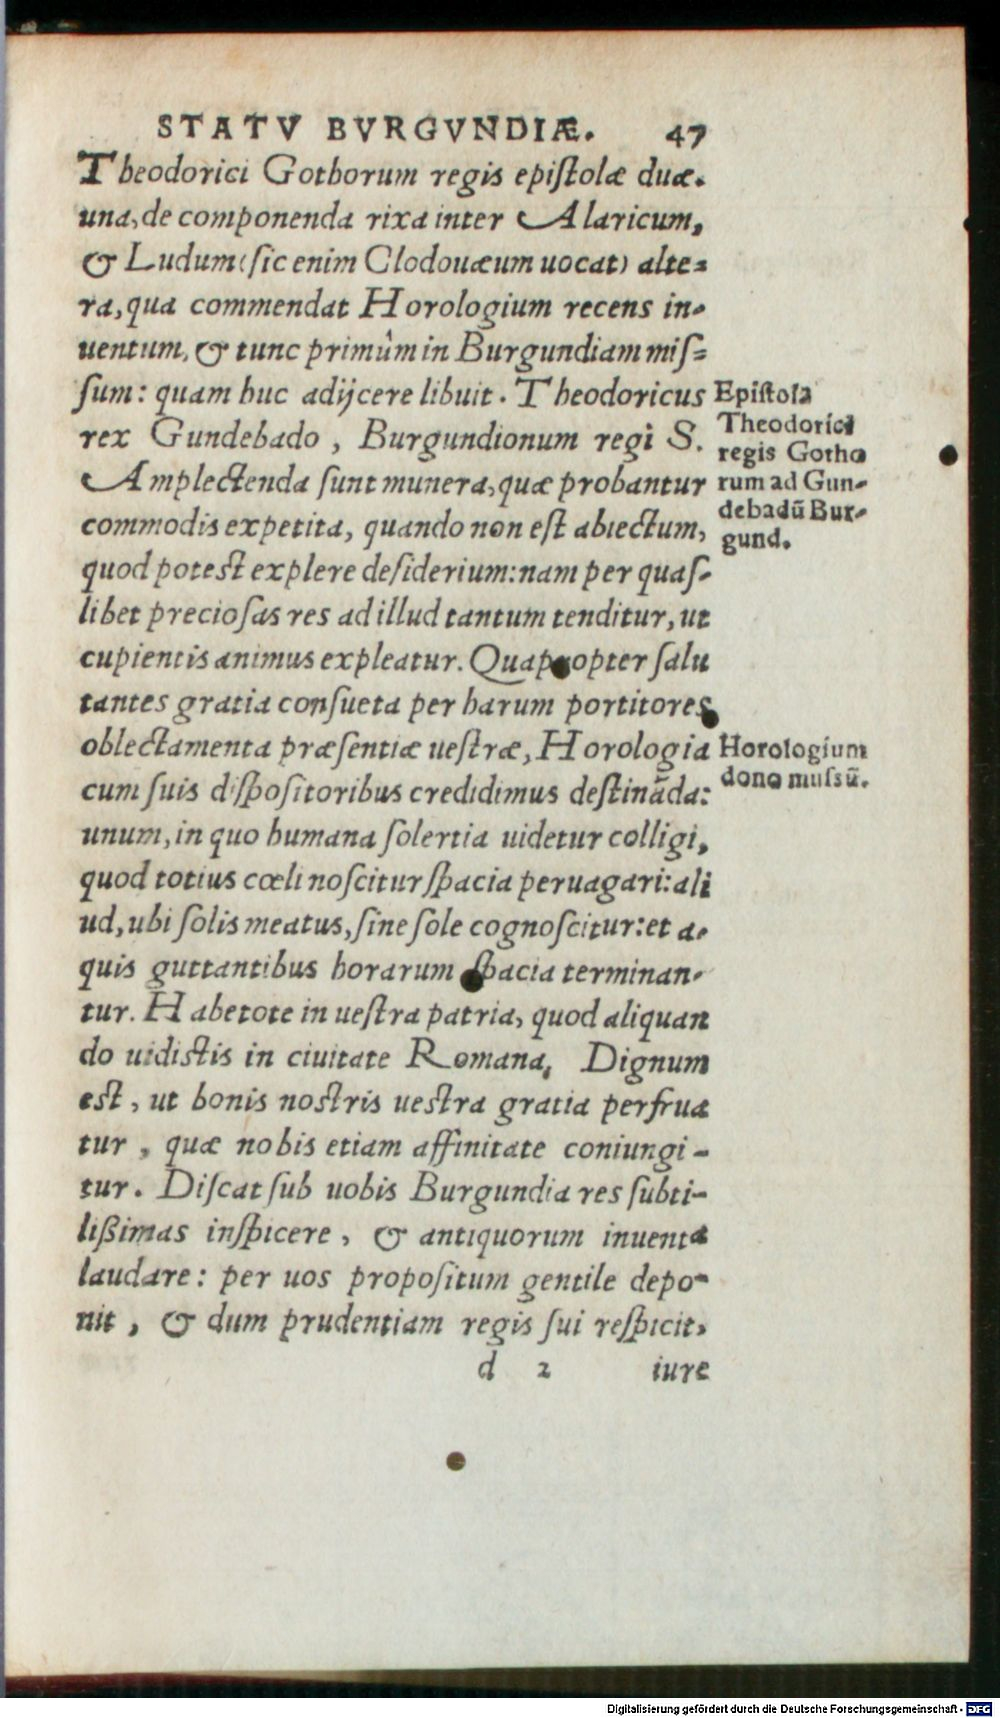 STATV BVRGVNDIÆ. 47
Theodorici Gothorum regis epiſtolæ duæ.
una, de componenda rixa inter Alaricum,
& Ludum (ſic enim Clodouæum uocat) alte-
ra, qua commendat Horologium recens in-
uentum, & tunc primûm in Burgundiam miſ-
ſum: quam huc adijcere libuit. Theodoricus
rex Gundebado, Burgundionum regi S.
Amplectenda ſunt munera, quæ probantur
commodis expetita, quando non eſt abiectum,
quod poteſt explere deſiderium: nam per quaſ-
libet precioſas res ad illud tantum tenditur, ut
cupientis animus expleatur. Quapropter ſalu
tantes gratia conſueta per harum portitores
oblectamenta præſentiæ ueſtræ, Horologia
cum ſuis diſpoſitoribus credidimus deſtinãda:
unum, in quo humana ſolertia uidetur colligi,
quod totius cœli noſcitur ſpacia peruagari: ali
ud, ubi ſolis meatus, ſine ſole cognoſcitur: et a-
quis guttantibus horarum ſpacia terminan-
tur. Habetote in ueſtra patria, quod aliquan
do uidiſtis in ciuitate Romana, Dignum
eſt, ut bonis noſtris ueſtra gratia perfrua
tur, quæ nobis etiam affinitate coniungi-
tur. Diſcat ſub uobis Burgundia res ſubti-
lißimas inſpicere, & antiquorum inuenta
laudare: per uos propoſitum gentile depo-
nit, & dum prudentiam regis ſui reſpicit,
d 2 iure
Epiſtola
Theodorici
regis Gotho
rum ad Gun-
debadũ Bur-
gund.
Horologium
dono muſsũ.
Digitalisierung gefördert durch die Deutsche Forschungsgemeinschaft - DFG